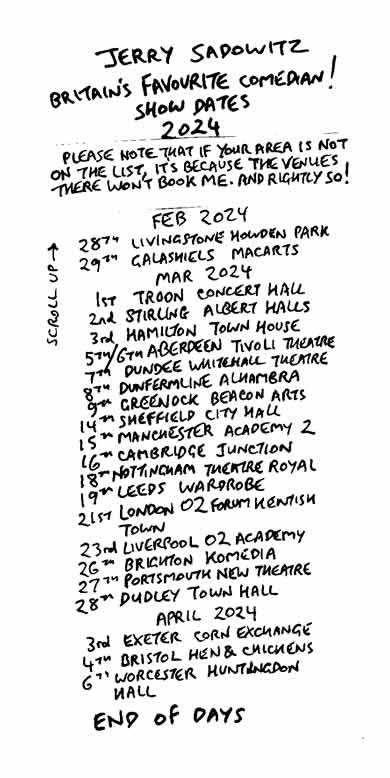 JERRY SADOWITZ
BRITAIN'S FAVOURITE COMEDIAN!
SHOW DATES
2024
PLEASE NOTE THAT IF YOUR AREA IS NOT
ON THE LIST, IT'S BECAUSE THE VENUES
THERE WON'T BOOK ME. AND RIGHTLY SO!
FEB 2024
SCROLL UP →
28TH LIVINGSTONE HOWDEN PARK
29TH GALASHIELS MACARTS
MAR 2024
1ST TROON CONCERT HALL
2nd STIRLING ALBERT HALLS
3rd HAMILTON TOWN HOUSE
5TH/6TH ABERDEEN TIVOLI THEATRE
7TH DUNDEE WHITEHALL THEATRE
8TH DUNFERMLINE ALHAMBRA
9TH GREENOCK BEACON ARTS
14TH SHEFFIELD CITY HALL
15TH MANCHESTER ACADEMY 2
16TH CAMBRIDGE JUNCTION
18TH NOTTINGHAM THEATRE ROYAL
19TH LEEDS WARDROBE
21ST LONDON O2 FORUM KENTISH
TOWN
23rd LIVERPOOL O2 ACADEMY
26TH BRIGHTON KOMEDIA
27TH PORTSMOUTH NEW THEATRE
28TH DUDLEY TOWN HALL
APRIL 2024
3rd EXETER CORN EXCHANGE
4TH BRISTOL HEN & CHICKENS
6TH WORCESTER HUNTINGDON
HALL
END OF DAYS